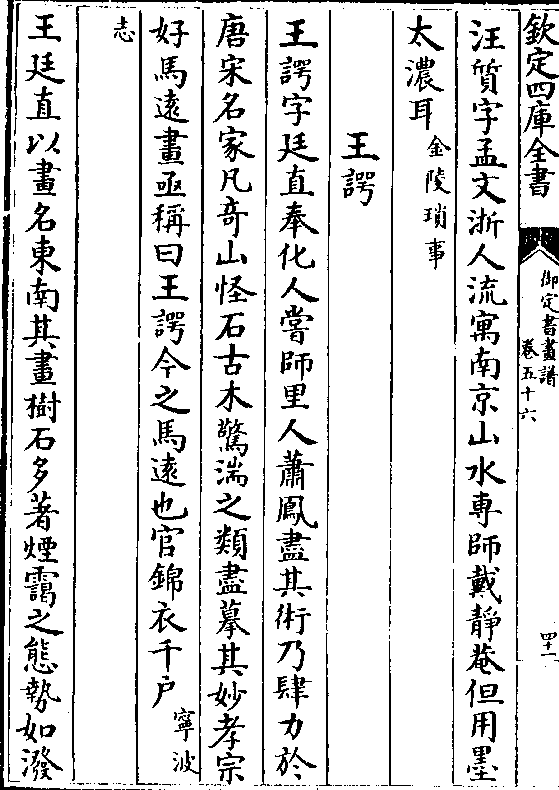 欽定四庫全書
御定書畫譜
卷五十六
四十一
汪質字孟文浙人流寓南京山水專師戴靜菴但用墨
太濃耳金陵瑣事
王諤
王諤字廷直奉化人嘗師里人蕭鳳盡其術乃肆力於
唐宋名家凡竒山怪石古木驚湍之類盡摹其妙孝宗
好馬逺畫亟稱曰王諤今之馬逺也官錦衣千戸寧波
志
王廷直以畫名東南其畫樹石多著煙靄之態勢如潑